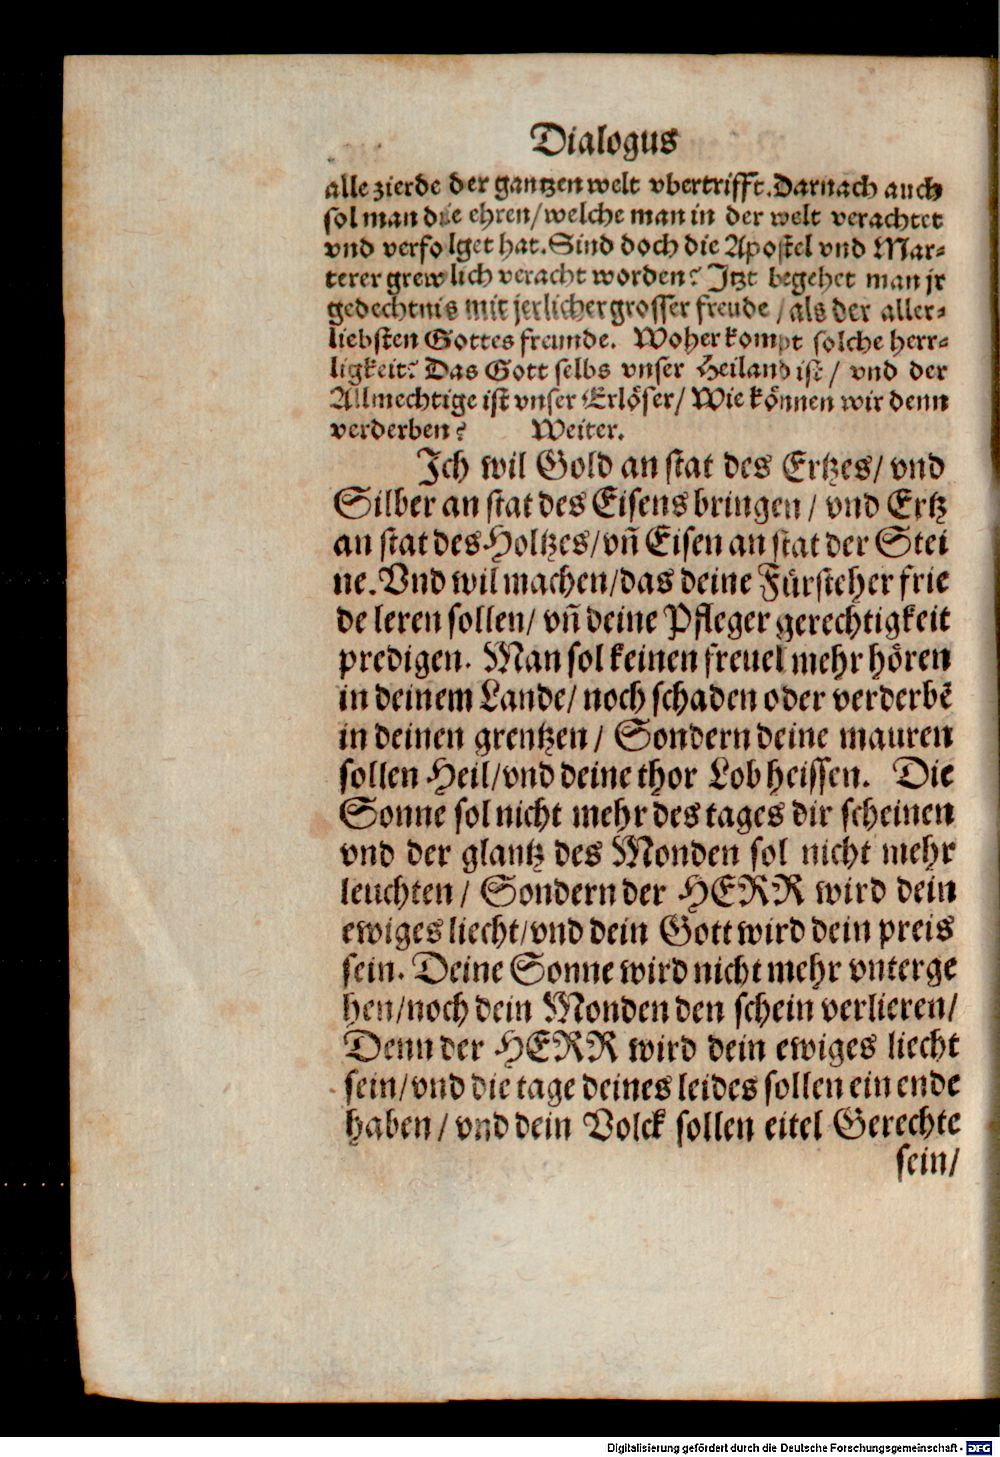 Dialogus
alle zierde der gantzen welt vbertrifft. Darnach auch
sol man die ehren/ welche man in der welt verachtet
vnd verfolget hat. Sind doch die Apostel vnd Mar-
terer grewlich veracht worden? Jtzt begehet man jr
gedechtnis mit jerlicher grosser freude / als der aller-
liebsten Gottes freunde. Woher kompt solche herr-
ligkeit? Das Gott selbs vnser Heiland ist / vnd der
Allmechtige ist vnser Erlöser/ Wie können wir denn
verderben? Weiter.
Jch wil Gold an stat des Ertzes/ vnd
Silber an stat des Eisens bringen / vnd Ertz
an stat des Holtzes/ vn̄ Eisen an stat der Stei
ne. Vnd wil machen/ das deine Fürsteher frie
de leren sollen/ vn̄ deine Pfleger gerechtigkeit
predigen. Man sol keinen freuel mehr hören
in deinem Lande/ noch schaden oder verderbē
in deinen grentzen / Sondern deine mauren
sollen Heil/ vnd deine thor Lob heissen. Die
Sonne sol nicht mehr des tages dir scheinen
vnd der glantz des Monden sol nicht mehr
leuchten / Sondern der HERR wird dein
ewiges liecht/ vnd dein Gott wird dein preis
sein. Deine Sonne wird nicht mehr vnterge
hen/ noch dein Monden den schein verlieren/
Denn der HERR wird dein ewiges liecht
sein/ vnd die tage deines leides sollen ein ende
haben / vnd dein Volck sollen eitel Gerechte
sein/
Digitalisierung gefördert durch die Deutsche Forschungsgemeinschaft - DFG